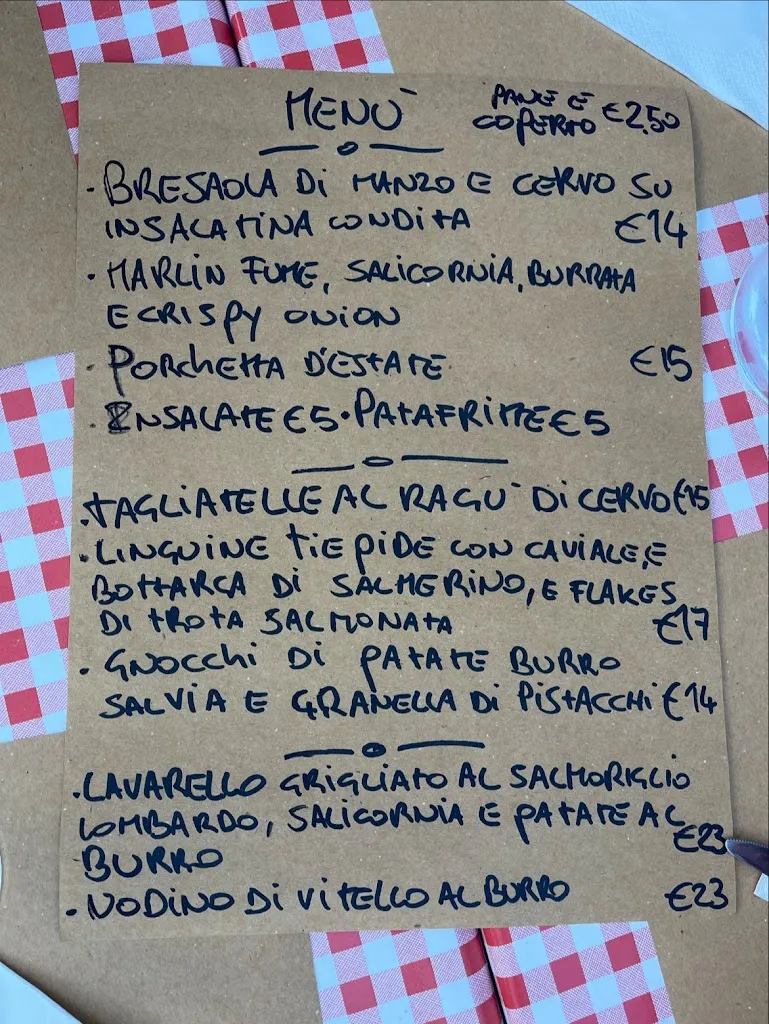 MENÙ
PANE E COPERTO €2,50
· BRESAOLA DI MANZO E CERVO SU
INSALATINA CONDITA €14
· MARLIN FUMÉ, SALICORNIA, BURRATA
E CRISPY ONION
· PORCHETTA D'ESTATE €15
· INSALATE €5 · PATATE FRITTE €5
· TAGLIATELLE AL RAGÙ DI CERVO €15
· LINGUINE TIEPIDE CON CAVIALE, E
BOTTARGA DI SALMERINO, E FLAKES
DI TROTA SALMONATA €17
· GNOCCHI DI PATATE BURRO
SALVIA E GRANELLA DI PISTACCHI €14
· LAVARELLO GRIGLIATO AL SALMORIGLIO
LOMBARDO, SALICORNIA E PATATE AL
BURRO €23
· NODINO DI VITELLO AL BURRO €23